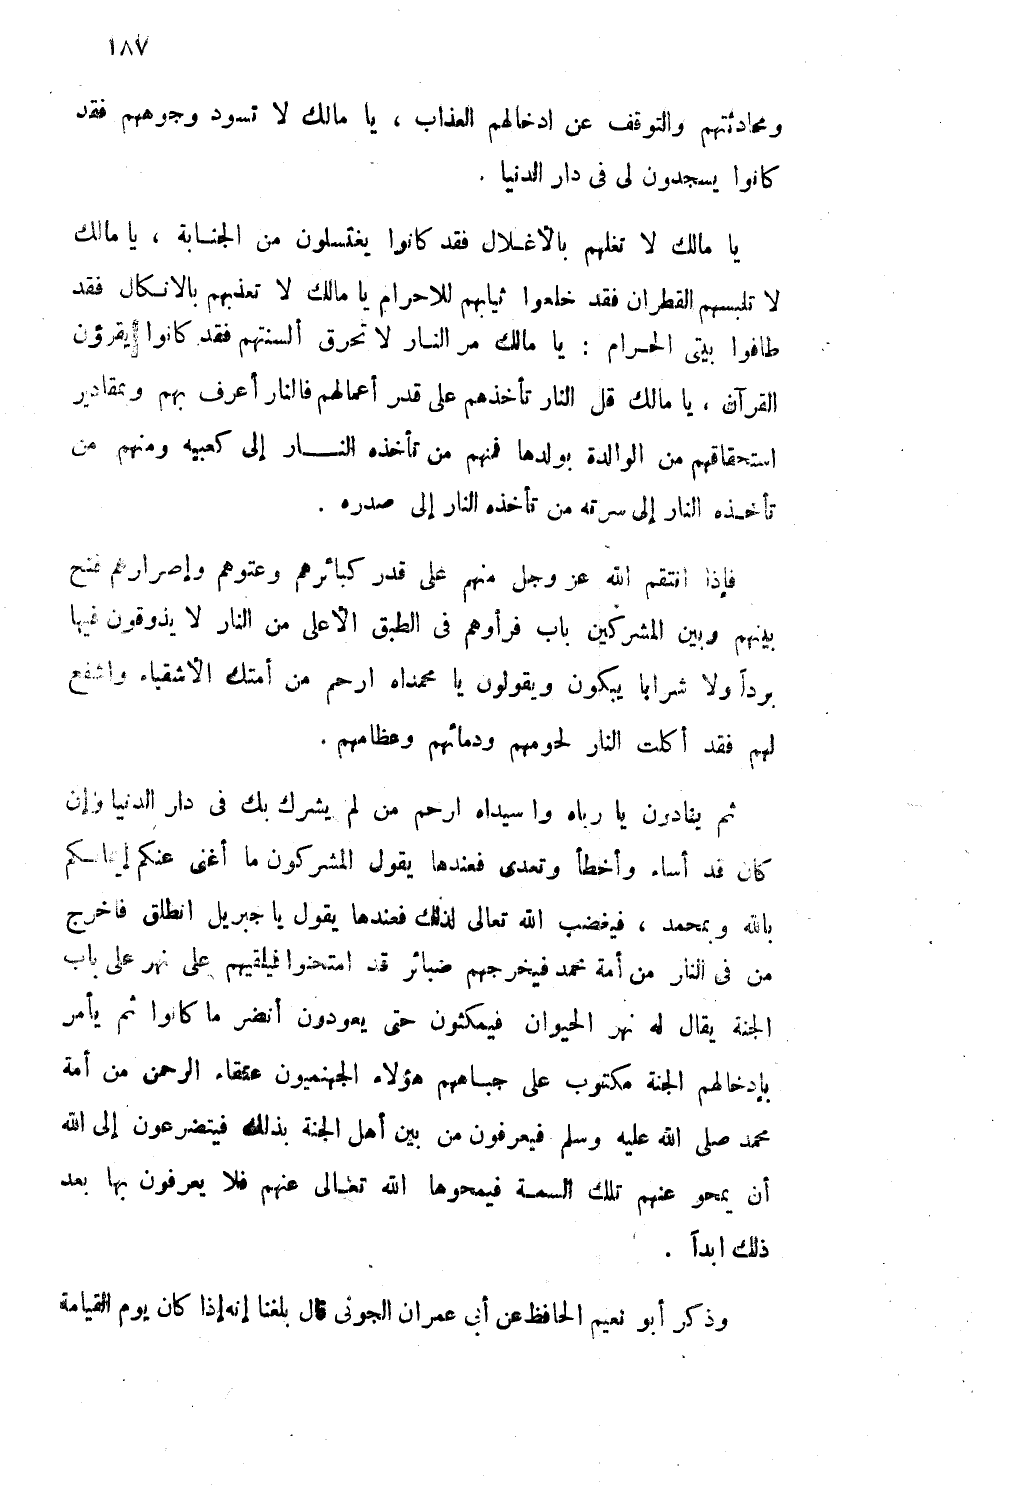 ١٨٧
ومحادثتهم والتوقف عن ادخالهم العذاب ، يا مالك لا تسود وجوههم فقد
كانوا يسجدون لى فى دار الدنيا .
يا مالك لا تغلهم بالأغـلال فقد كانوا يغتسلون من الجنـابة ، يا مالك
لا تلبسهم القطران فقد خلعوا ثيابهم للاحرام يا مالك لا تعذبهم بالانـكال فقد
طافوا بيتى الحـرام : يا مالك مر النـار لا تحرق ألسنتهم فقد كانوا يقرؤن
القرآن ، يا مالك قل النار تأخذهم على قدر أعمالهم فالنار أعرف بهم وبمقادير
استحقاقهم من الوالدة بولدها فمنهم من تأخذه النـــار إلى كعبيه ومنهم من
تأخـذه النار إلى سرته من تأخذه النار إلى صدره .
فإذا انتقم الله عز وجل منهم على قدر كبائرهم وعتوهم وإصرارهم فتح
بينهم وبين المشركين باب فرأوهم فى الطبق الأعلى من النار لا يذوقون فيها
برداً ولا شرابا يبكون ويقولون يا محمداه ارحم من أمتك الأشقياء واشفع
لهم فقد أكلت النار لحومهم ودمائهم وعظامهم .
ثم ينادون يا رباه وا سيداه ارحم من لم يشرك بك فى دار الدنيا وإن
كان قد أساء وأخطأ وتعدى فعندها يقول المشركون ما أغنى عنكم إيمانـكم
بالله وبمحمد ، فيغضب الله تعالى لذلك فعندها يقول يا جبريل انطلق فاخرج
من فى النار من أمة محمد فيخرجهم ضبائر قد امتحنوا فيلقيهم على نهر على باب
الجنة يقال له نهر الحيوان فيمكثون حتى يعودون أنضر ما كانوا ثم يأمر
بإدخالهم الجنة مكتوب على جبـاههم هؤلاء الجهنميون عتقاء الرحمن من أمة
محمد صلى الله عليه وسلم فيعرفون من بين أهل الجنة بذلك فيتضرعون إلى الله
أن يمحو عنهم تلك السمـة فيمحوها الله تعـالى عنهم فلا يعرفون بها بعد
ذلك ابداً .
وذكر أبو نعيم الحافظ عن أبى عمران الجونى قال بلغنا إنه إذا كان يوم القيامة